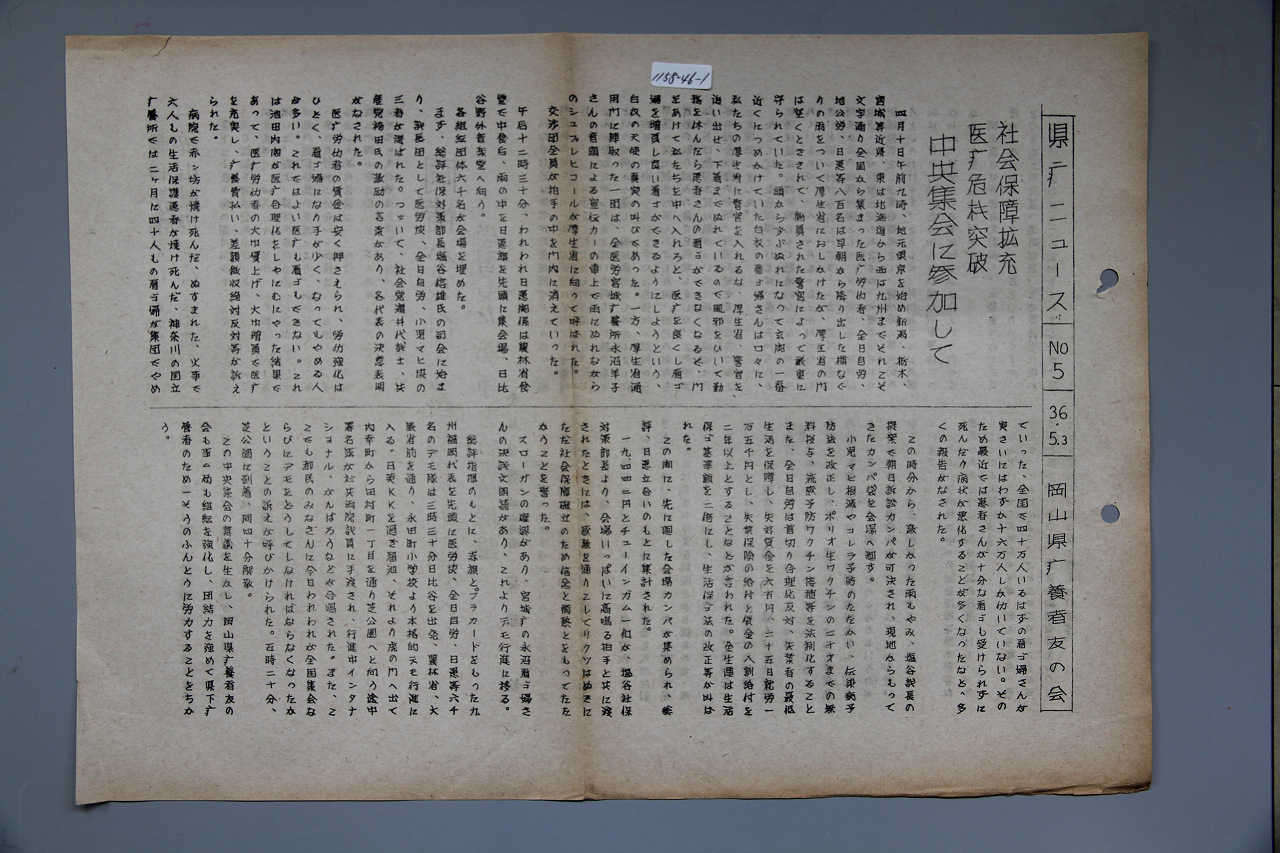 1158-46-1
県疒ニュース No 5 36.5.3 岡山県疒養者友の会
社会保障拡充
医疒危機突破
中央集会に参加して
四月十日午前九時、地元東京を始め新潟、栃木、
宮城等近県、東は北海道から西は九州までそれこそ
文字通り全国から集まった医疒労仂者、全日自労、
地公労、日患等八百名は早朝から降り出した横なぐ
りの雨をついて厚生省におしかけたが、厚生省の門
は堅くとざされて、動員された警官によって厳重に
守られていた。頭からずぶぬれになって玄関の一番
近くにつめかけていた白衣の看ゴ婦さんは口々に、
私たちの厚生省に警官を入れるな、厚生省、警官を
追い出せ、下着までぬれているので風邪をひいて勤
務を休んだら患者さんの看ゴができなくなるぞ、門
をあけて私たちを中へ入れろと、医疒を良くし看ゴ
婦を増員し良い看ゴができるようにしようという、
白衣の天使の真実の叫びであった。一方、厚生省通
用門に陣取った一団は、全医労宮城疒養所永沼洋子
さんの音頭による宣伝カーの車上で雨にぬれながら
のシュプレヒコールが厚生省に向って呼ばれた。
交渉団全員が拍手の中を門内に消えていった。
午后十二時三十分、われわれ日患関係は農林省食
堂で中食后、雨の中を日患都を先頭に集会場、日比
谷野外音楽堂へ向う。
各組織団体六千名が会場を埋めた。
まず、総評社保対策部長塩谷信雄氏の司会に始ま
り、議長団として医労投、全日自労、小児マヒ投の
三者が選ばれた。つづいて、社会党滝井代議士、共
産党袴田氏の激励の言葉があり、各代表の決意表明
がなされた。
医疒労仂者の賃金は安く押さえられ、労仂強化は
ひどく、看ゴ婦になり手が少く、なってもやめる人
が多い。これではよい医疒も看ゴもできない。これ
は池田内閣が医疒合理化をしゃにむにやった結果で
あって、医疒労仂者の大巾賃上げ、大巾増員で医疒
を充実し、疒養費払い、差額徴収絶対反対等が訴え
られた。
病院で赤ン坊が焼け死んだ、ぬすまれた、火事で
六人もの生活保護患者が焼け死んだ、神奈川の国立
疒養所では二ヶ月に四十人もの看ゴ婦が集団でやめ
ていった、全国で四十万人いるはずの看ゴ婦さんが
実さいにはわずか十六万人しか仂いていない。その
ため最近では患者さんが十分な看ゴも受けられずに
死んだり病状が悪化することが多くなったなど、多
くの報告がなされた。
この時分から、激しかった雨もやみ、塩谷議長の
提案で朝日訴訟カンパが可決され、現地からもって
きたカンパ袋を会場へ廻す。
小児マヒ根滅やコレラ予防のたたかい、伝染病予
防法を改正し、ポリオ生ワクチンの二十才までの無
料投与、流感予防ワクチン接種等を法制化すること
また、全日自労は首切り合理化反対、失業者の最低
生活を保障し、失対賃金を六百円、二十五日就労一
万五千円とし、失業保険の給付と賃金の八割給付を
二年以上とすることなどが言われた。全生連は生活
保ゴ基準額を二倍にし、生活保ゴ法の改正等が叫ば
れた。
この間に、先に廻した会場カンパが集められ、総
評、日患立合いのもとに集計された。
一九、四四二円とチューインガム一個が、塩谷社保
対策部長より、会場いっぱいに高鳴る拍手と共に渡
されたときには、感激を通りこしてリクツはぬきに
ただ社会保障確立のため信念と情熱とをもってたた
かうことを誓った。
スローガンの確認があり、宮城疒の永沼看ゴ婦さ
んの決議文朗読があり、これよりデモ行進に移る。
総評指揮のもとに、赤旗とプラカードをもった九
州福岡代表を先頭に医労投、全日自労、日患等六千
名のデモ隊は三時三十分日比谷を出発、農林省、大
蔵省前を通り、永田町小学校より本格的デモ行進に
入る。日英KKを過ぎ溜池、それより虎の門へ出て
内幸町から田村町一丁目を通り芝公園へと向う途中
署名簿が社共両院議員に手渡され、行進中インタナ
ショナル、がんばろうなどが合唱された。また、こ
こでも都民のみなさんに今日われわれが全国集会な
らびにデモをどうしてしなければならなくなったか
ということの訴えが呼びかけられた。五時二十分、
芝公園に到着、同四十分解散。
この中央集会の意義を生かし、岡山県疒養者友の
会も歪ム励も組織を強化し、団結力を強めて県下疒
養者のため一そうのふんとうに労力することをちか
う。